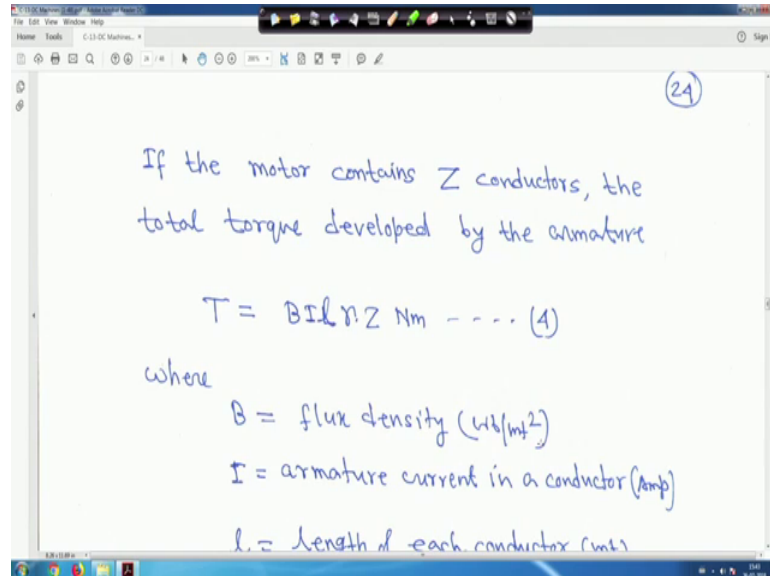 File Edit View Window Help
Home Tools C-13-DC Machines... × Sign
24
If the motor contains Z conductors, the
total torque developed by the armature
T = BIl r.Z Nm ---- (4)
where
B = flux density (wb/mt²)
I = armature current in a conductor (Amp)
l = length of each conductor (mt)